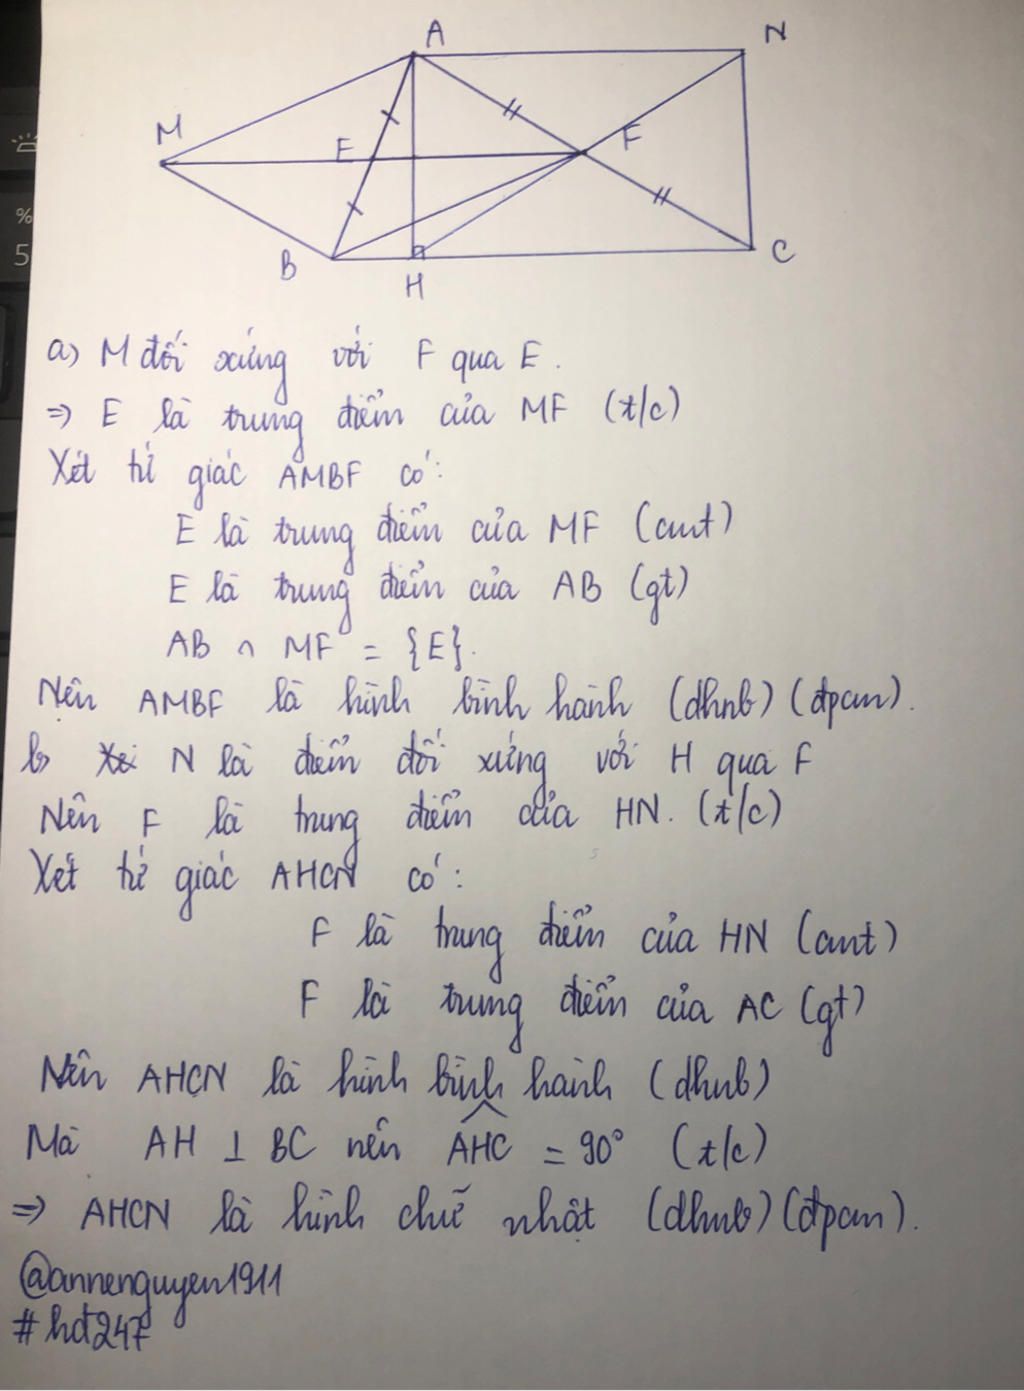 A
N
M
E
F
B
H
C
%
5
a) M đối xứng với F qua E.
=> E là trung điểm của MF (t/c)
Xét tứ giác AMBF có:
E là trung điểm của MF (cmt)
E là trung điểm của AB (gt)
AB ∩ MF = {E}.
Nên AMBF là hình bình hành (dhnb) (đpcm).
b, N là điểm đối xứng với H qua F
Nên F là trung điểm của HN. (t/c)
Xét tứ giác AHCN có:
F là trung điểm của HN (cmt)
F là trung điểm của AC (gt)
Nên AHCN là hình bình hành (dhnb)
Mà AH ⊥ BC nên \widehat{AHC} = 90° (t/c)
=> AHCN là hình chữ nhật (dhnb) (đpcm).
@annenguyen1911
#hd247